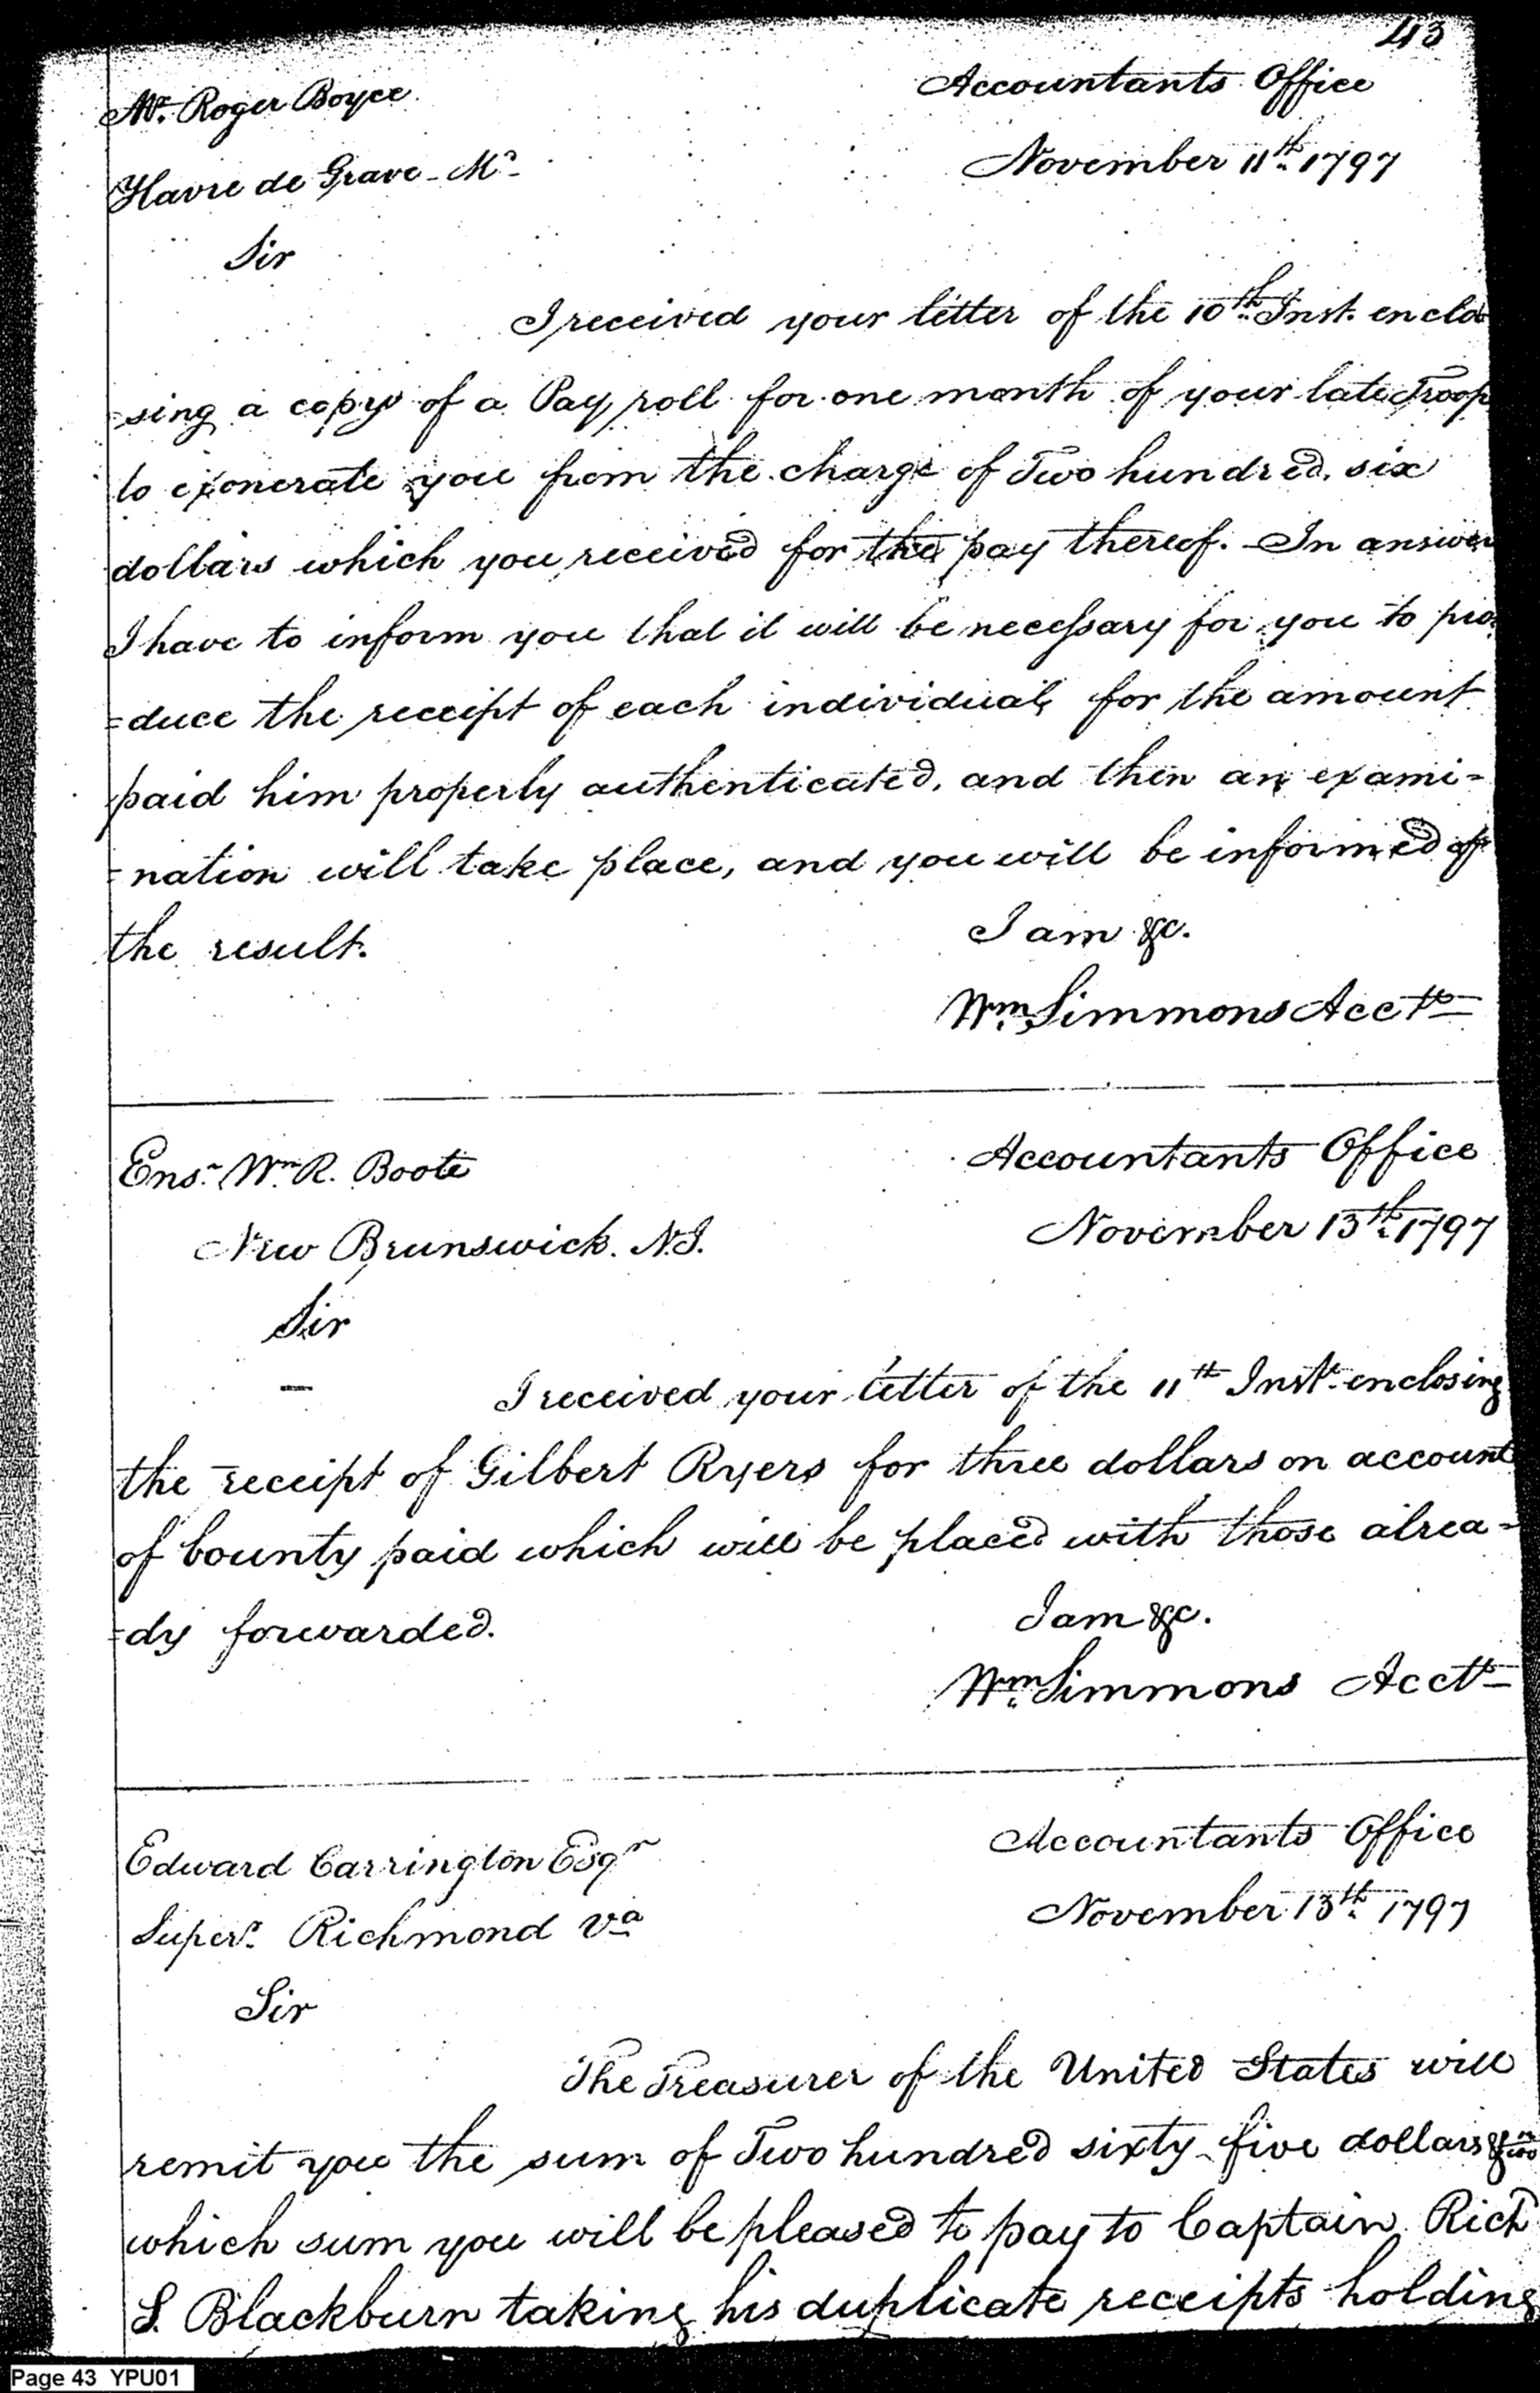 43
Mr. Roger Boyce
Accountants Office
Havre de Grave - Md
November 11th. 1797
Sir
I received your letter of the 10th. Inst. enclo
=sing a copy of a Pay roll for one month of your late Troop
to exonerate you from the charge of Two hundred six
dollars which you received for the pay thereof. - In answer
I have to inform you that it will be necessary for you to pro
=duce the receipt of each individual, for the amount
paid him properly authenticated, and then an exami-
=nation will take place, and you will be informed of
the result.
I am &c.
Wm. Simmons Acctt
Ensn. Wm. R. Boote
Accountants Office
New Brunswick. N.J.
November 13th. 1797
Sir
I received your letter of the 11th Inst. enclosing
the receipt of Gilbert Ryers for three dollars on account
of bounty paid which will be placed with those alrea-
=dy forwarded.
I am &c.
Wm. Simmons Acctt
Edward Carrington Esqr
Accountants Office
Superr. Richmond Va
November 13th. 1797
Sir
The Treasurer of the United States will
remit you the sum of Two hundred sixty-five dollars &
which sum you will be pleased to pay to Captain Richd
S. Blackburn taking his duplicate receipts holding
Page 43 YPU01